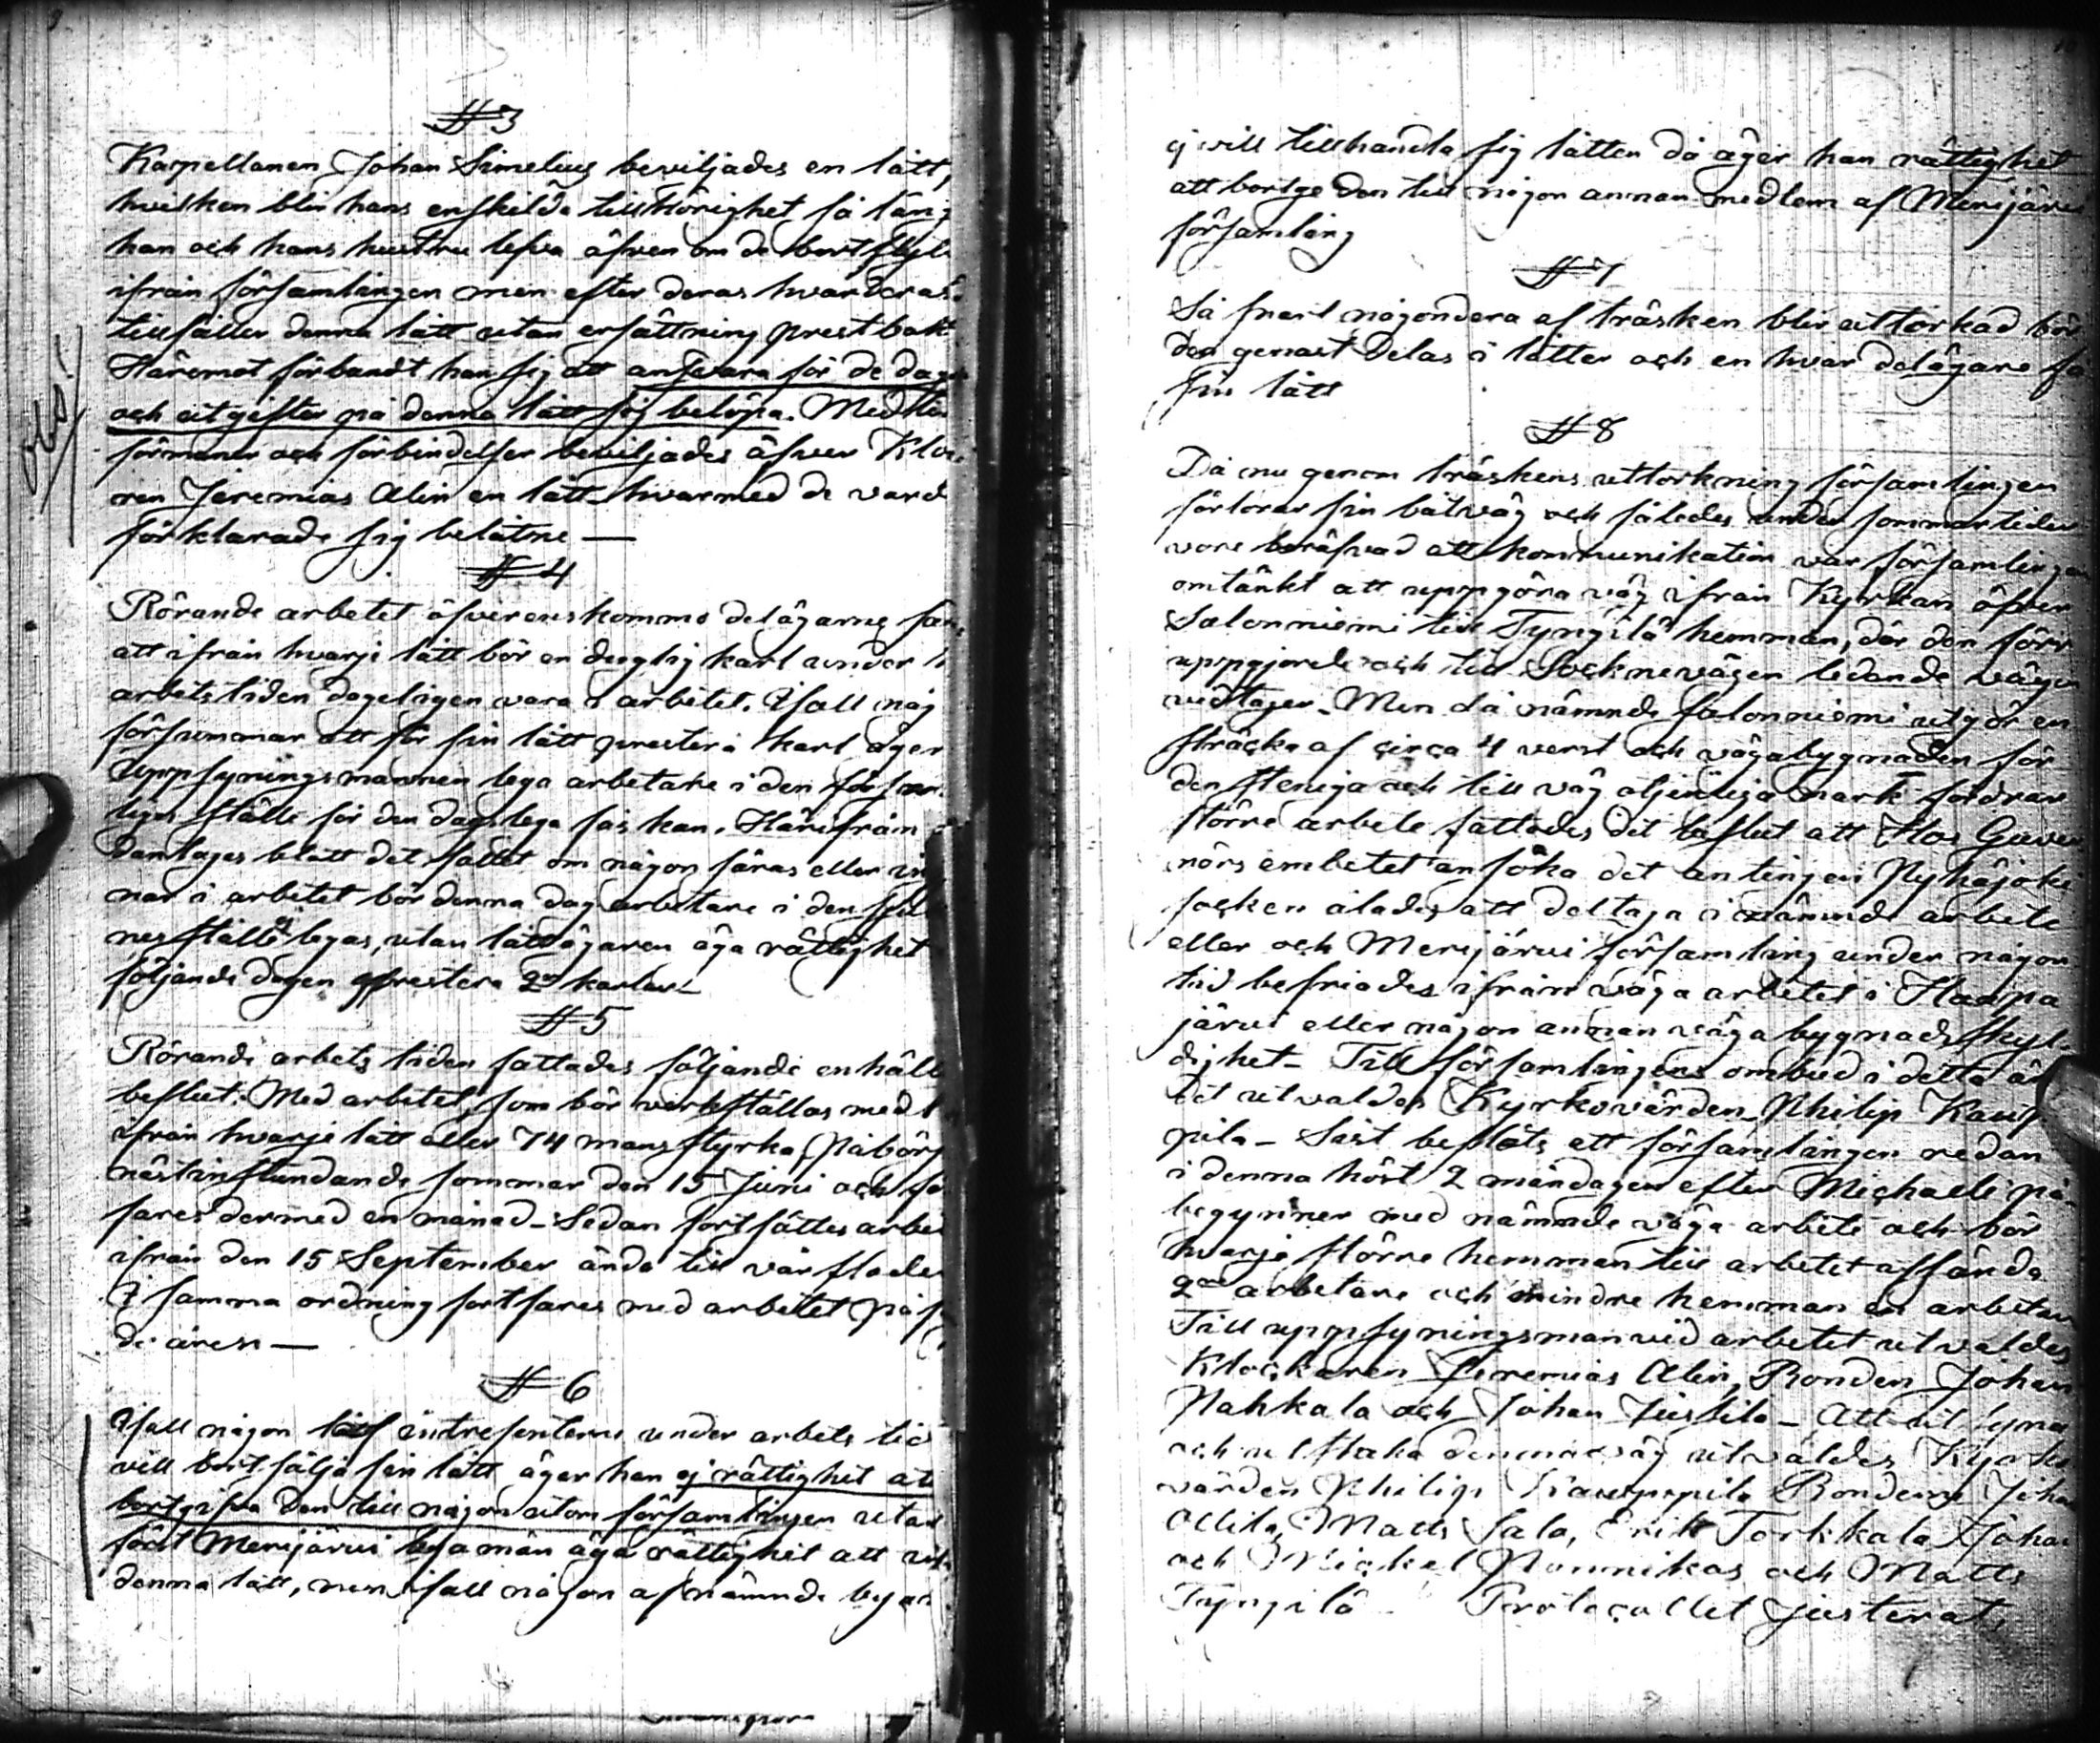 § 3
Kapellanen Johan Simelius beviljades en lått,
hvilken blir hans enskilda tillhörighet så läng
han och hans hustru lefva äfven om de bortflytt
ifrån församlingen men efter deras hvarderas
tillfaller denna lått utan ersättning prestbol
Häremot förbandt han sig att ansvara för de dag
och utgifter på denna lått sig belöpa. Med
förmåner och förbindelser beviljades äfven Klo
ren Jeremias Alin en lått hvarmed de
förklarade sig belåtne —
Obs!
§ 4
Rörande arbetet öfverenskommo delägarne
att ifrån hvarje lått bör en duglig karl under
arbetstiden dageligen vara i arbetet. Ifall någ
försummar att för sin lått prestera karl äger
Uppsyningsmannen lega arbetare i den försum
liges ställe för den dagslega fås kan. Härifrån
dantages blått det fallet om någon såras eller
nar i arbetet bör denna dag arbetare i den
nes ställe ej legas, utan låttägaren äga rättighet
följande dagen prestera 2ne karlar —
§ 5
Rörande arbets tiden fattades följande enhäll
beslut: Med arbetet, som bör verkställas med
ifrån hvarje lått eller 74 mans styrka, påbörj
nästinstundande sommar den 15 Juni och
fares dermed en månad — Sedan fortsättes arbe
ifrån den 15 September ända till vårfloden
I samma ordning fortfares med arbetet på
de åren —
§ 6
Ifall någon af intressenterne under arbets tid
vill bortsälja sin lått äger han ej rättighet at
bortgifva den till någon utom församlingen utan
först Merijärvi byamän äga rättighet att
denna lått, men ifall någon af nämnde byam
ej vill tillhandla sig låtten då äger han rättighet
att bortge den till någon annan medlem af Merijärvi
församling
§ 7
Så snart någondera af träsken blir uttorkad bör
den genast delas i låtter och en hvar delägare få
sin lått
§ 8
Då nu genom träskens uttorkning församlingen
förlorar sin båtväg och således under sommartiden
vore beröfvad att kommunikation var församlingen
omtänkt att uppgöra väg ifrån Kyrkan öfver
Salonniemi till Tyngilä hemman, där den förr
uppgjorde och till Socknevägen ledande vägen
vidtager. Men då nämnde salonniemi utgör en
sträcka af circa 4 verst och vägabygnaden för
den steniga och till väg otjenliga mark fordrar
större arbete fattades det beslut att Hos Guver
nörs embetet ansöka det antingen Pyhäjoki
socken ålades att deltaga i nämnde arbete
eller och Merijärvi församling under någon
tid befriades ifrån väga arbetet i Haapa
järvi eller någon annan väga bygnads skyl
dighet — Till församlingens ombud i detta är
det utvaldes Kyrkovärden Philip Kaup
pila — Sist beslöts att församlingen redan
i denna höst 2 måndagen efter Michaeli på
begynner med nämnde väga arbete och bör
hvarje större hemman till arbetet afsända
2ne arbetare och mindre hemman en arbetare
Till uppsyningsman vid arbetet utvaldes
Klockaren Jeremias Alin, Bonden Johan
Nahkala och Johan Jussila — Att utsyna
och utstaka denna väg utvaldes Kyrko
värden Philip Kauppila Bönderne Johan
Ollila, Matts Sala, Erik Torkkala Johan
och Mickel Nounikas och Matts
Tyngilä — Protocollet Justerat,